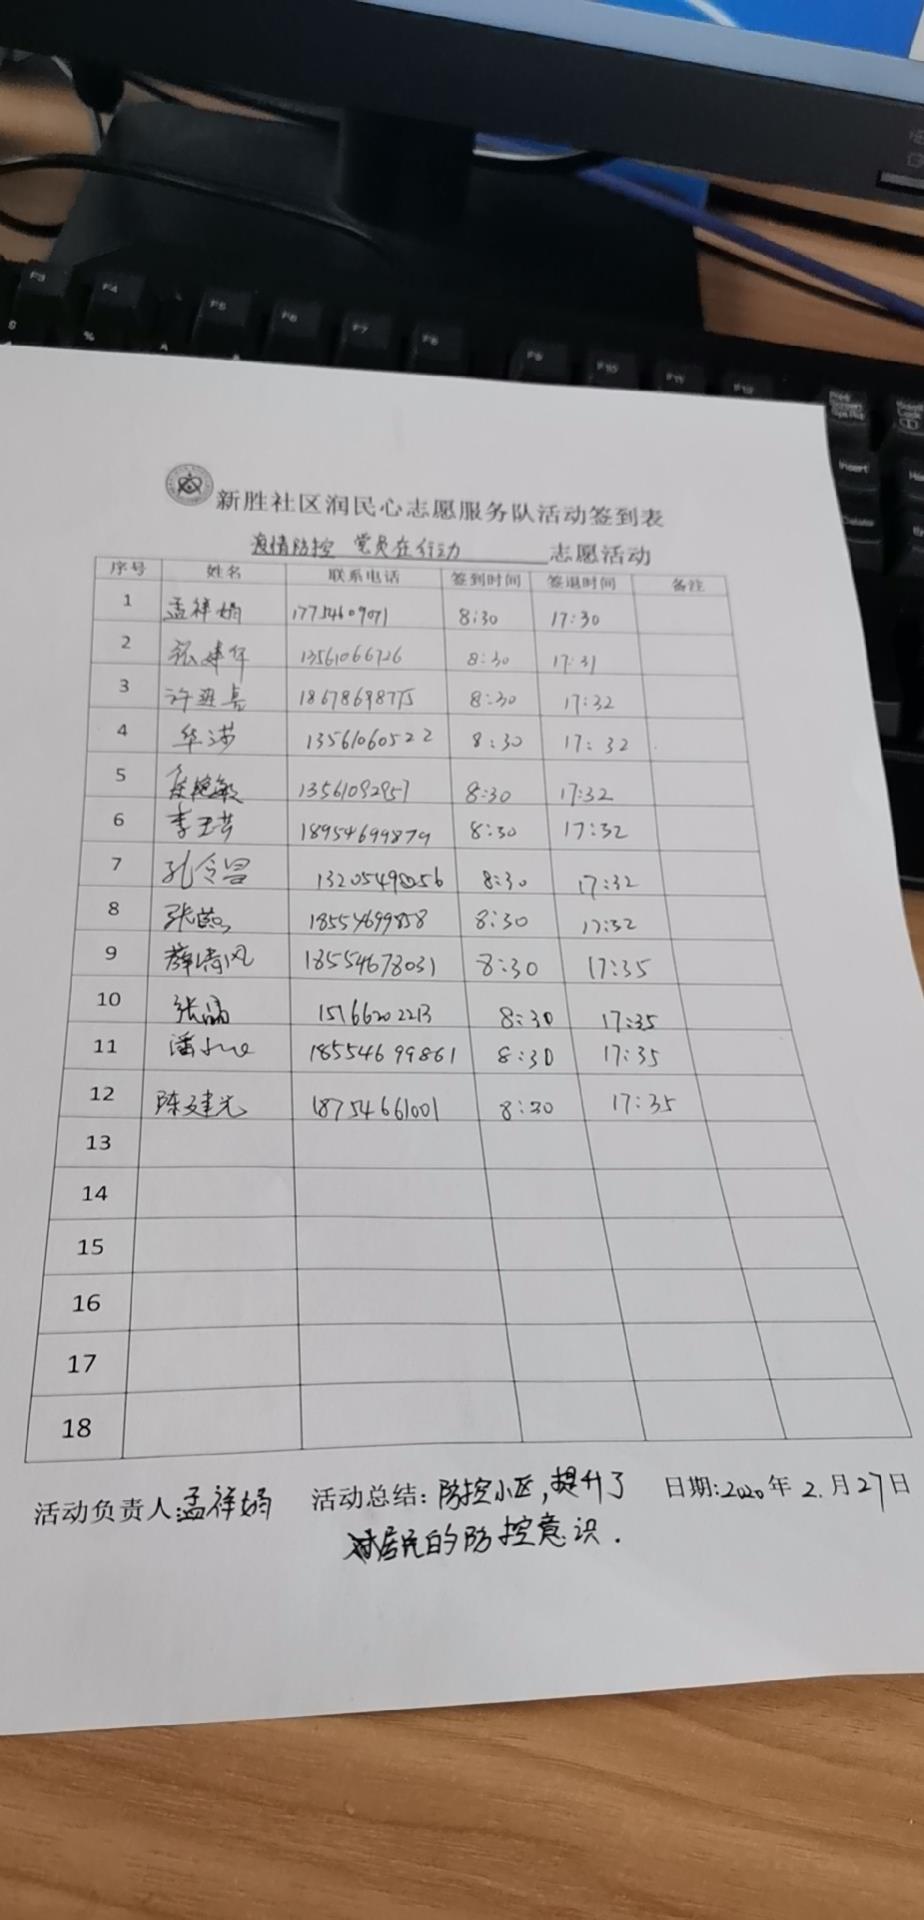 F3 F4 F5 F6 F7 F8 F9 F10 F11 F12
Insert
Delete
新胜社区润民心志愿服务队活动签到表
疫情防控 党员在行动 志愿活动
序号 姓名 联系电话 签到时间 签退时间 备注
1 孟祥娟 17754609071 8:30 17:30
2 张建军 13561066726 8:30 17:31
3 8:30 17:32
4 华涝 13561060522 8:30 17:32
5 13561092957 8:30 17:32
6 李玉芳 18954699879 8:30 17:32
7 孔令昌 8:30 17:32
8 张燕 18554699858 8:30 17:32
9 薛清风 18554678031 8:30 17:35
10 张 15166202213 8:30 17:35
11 潘 18554699861 8:30 17:35
12 陈建光 18754661001 8:30 17:35
13
14
15
16
17
18
活动负责人:孟祥娟 活动总结:防控小区,提升了 日期:2020年2.月27日
对居民的防控意识.